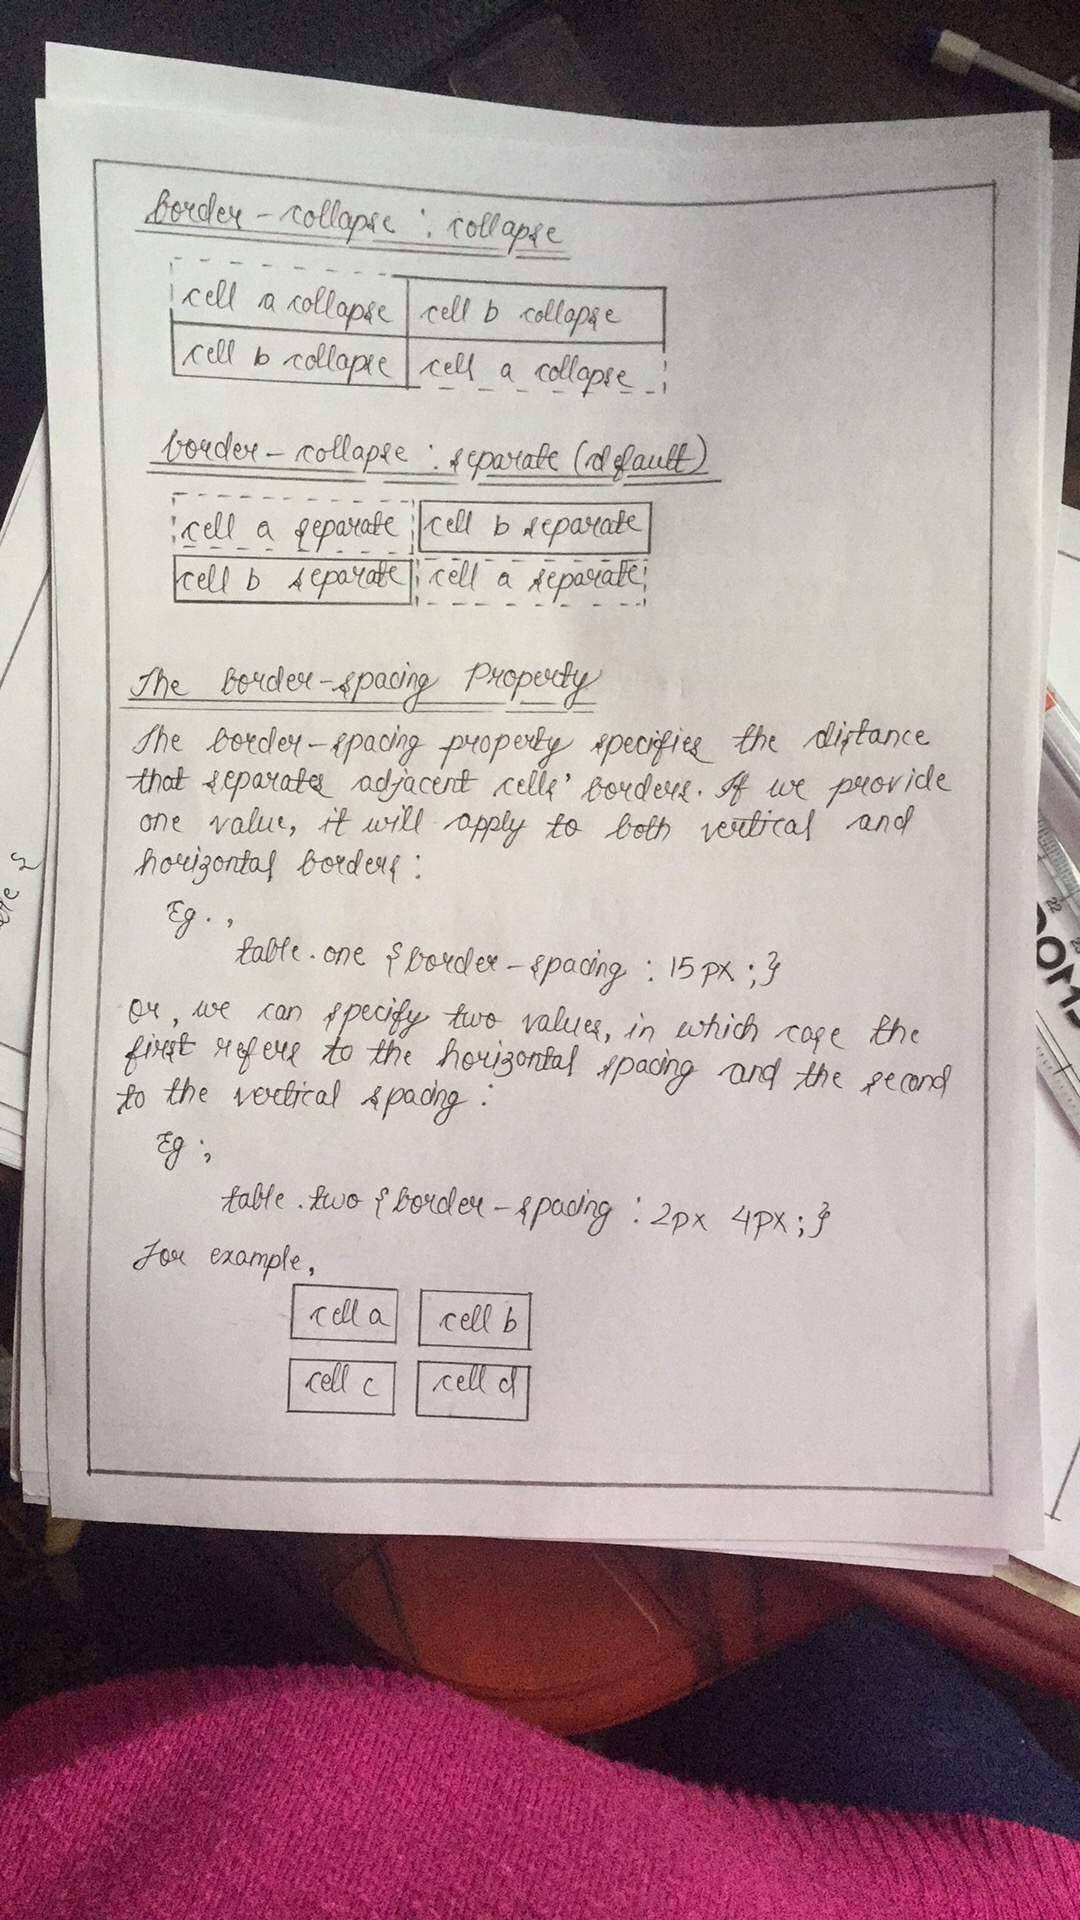 border-collapse : collapse
cell a collapse cell b collapse
cell b collapse cell a collapse
border-collapse : separate (default)
cell a separate cell b separate
cell b separate cell a separate
The border-spacing Property
The border-spacing property specifies the distance
that separates adjacent cells' borders. If we provide
one value, it will apply to both vertical and
horizontal borders :
Eg.,
table.one {border-spacing : 15px ;}
Or, we can specify two values, in which case the
first refers to the horizontal spacing and the second
to the vertical spacing :
Eg:,
table.two {border-spacing : 2px 4px ;}
For example,
cell a cell b
cell c cell d
22